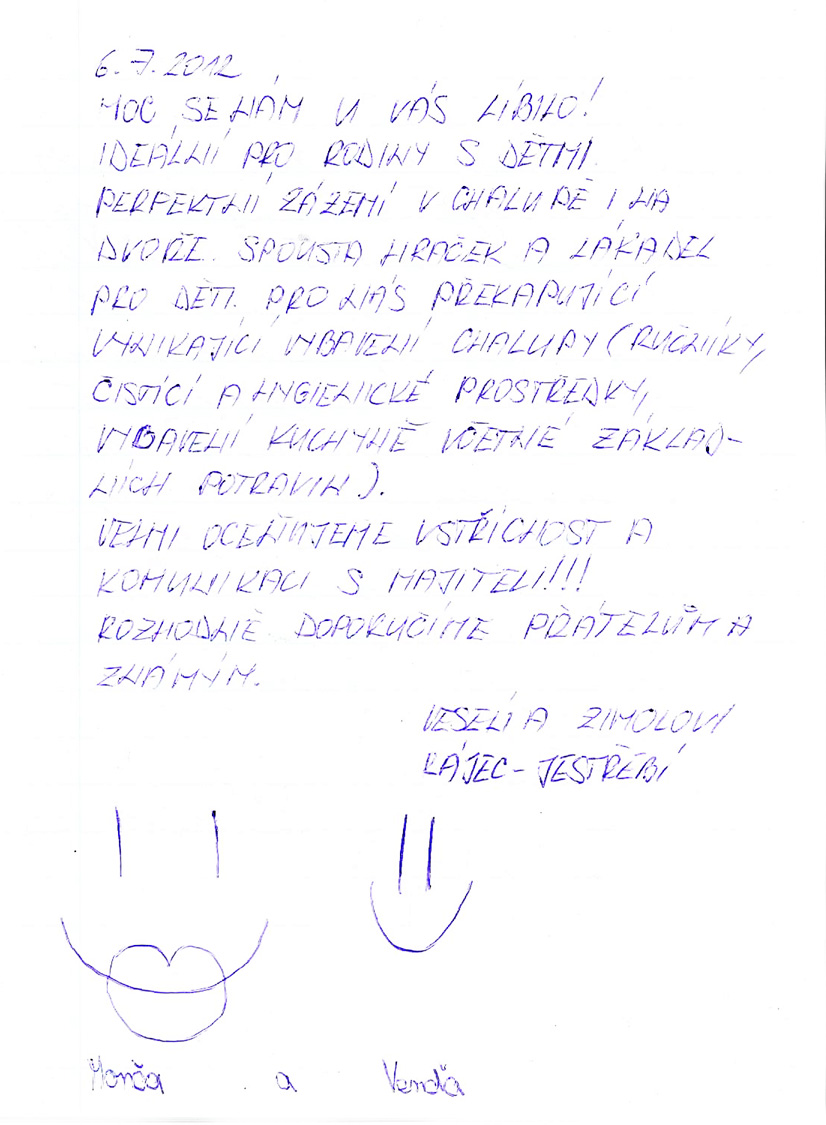 6.7.2012
MOC SE NÁM U VÁS LÍBILO!
IDEÁLNÍ PRO RODINY S DĚTMI.
PERFEKTNÍ ZÁZEMÍ V CHALUPĚ I NA
DVOŘE. SPOUSTA HRAČEK A LÁKADEL
PRO DĚTI. PRO NÁS PŘEKAPUJÍCÍ
VYNIKAJÍCÍ VYBAVENÍ CHALUPY (RUČNÍKY,
ČISTÍCÍ A HYGIENICKÉ PROSTŘEDKY,
VYBAVENÍ KUCHYNĚ VČETNĚ ZÁKLAD-
NÍCH POTRAVIN).
VELMI OCEŇUJEME VSTŘÍCNOST A
KOMUNIKACI S MAJITELI!!!
ROZHODNĚ DOPORUČÍME PŘÁTELŮM A
ZNÁMÝM.
VESELÍ A ZIMOLOVI
RÁJEC-JESTŘEBÍ
Monča a Venďa